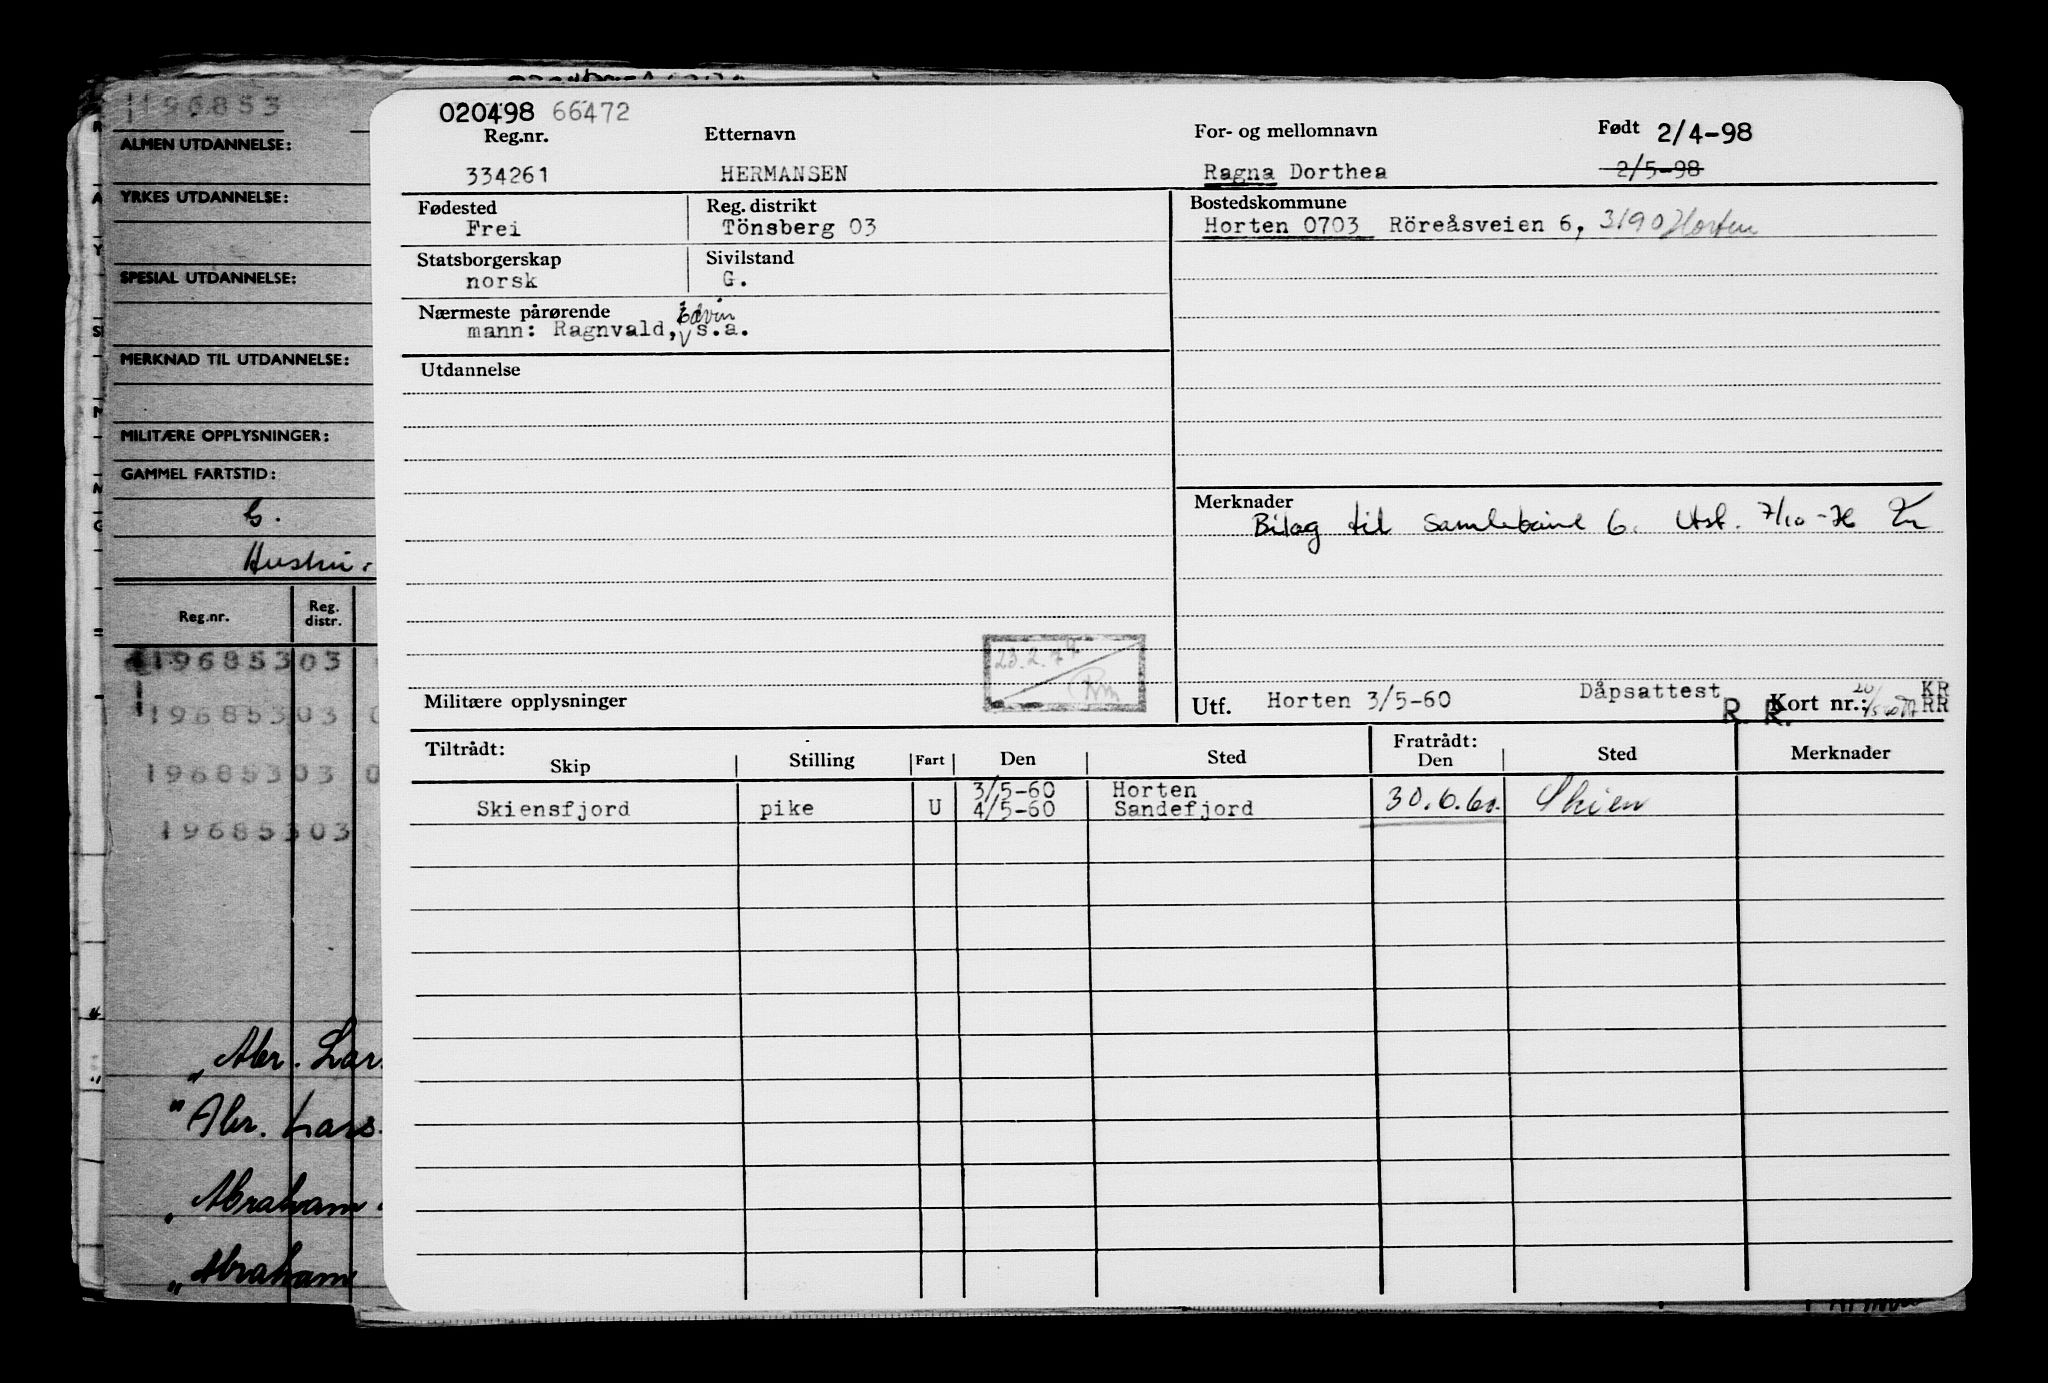 196853
ALMEN UTDANNELSE:
YRKES UTDANNELSE:
SPESIAL UTDANNELSE:
MERKNAD TIL UTDANNELSE:
MILITÆRE OPPLYSNINGER:
GAMMEL FARTSTID:
G.
Reg.nr. Reg. distr.
19685303
19685303
19685303
19685303
„ Abr. Lar
" Abr. Lars.
„ Abraham
„ Abraham
020498 66472
Reg.nr. Etternavn For- og mellomnavn Født 2/4-98
334261 HERMANSEN Ragna Dorthea 2/5-98
Fødested Reg. distrikt Bostedskommune
Frei Tönsberg 03 Horten 0703 Röreåsveien 6, 3190 Horten
Statsborgerskap Sivilstand
norsk G.
Nærmeste pårørende Edvin
mann: Ragnvald, s.a.
Utdannelse
Merknader
Bilag til samlebind 6. Utst. 7/10-76
23.2.74
Militære opplysninger Utf. Horten 3/5-60 Dåpsattest R. R. Kort nr.: KR RR
Tiltrådt: Fratrådt:
Skip Stilling Fart Den Sted Den Sted Merknader
3/5-60 Horten
Skiensfjord pike U 4/5-60 Sandefjord 30.6.60. Skien